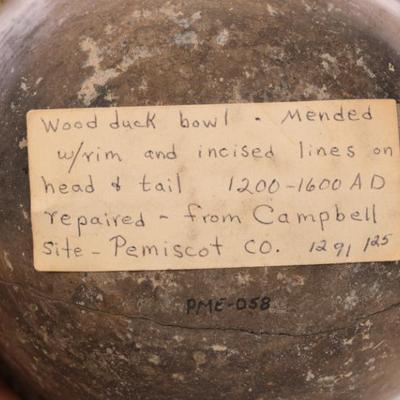 Wood duck bowl . Mended
w/rim and incised lines on
head & tail 1200-1600 AD
repaired - from Campbell
Site - Pemiscot CO. 1291 125
PME-058